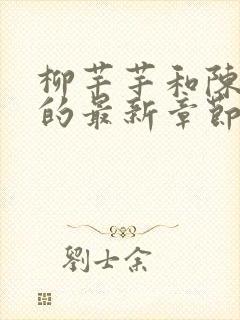 柳芊芊和陳
的最新章節
劉士余